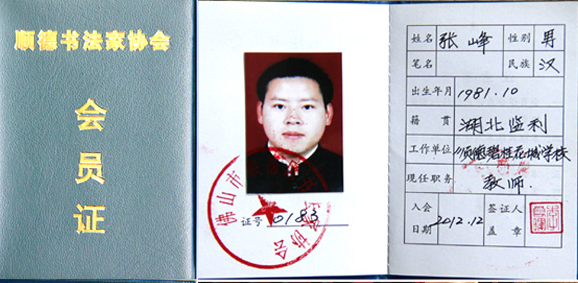 顺德书法家协会
会员证
佛山市
家协会
证号 0183
姓名 张峰 性别 男
笔名 民族 汉
出生年月 1981.10
籍贯 湖北监利
工作单位 顺德碧桂花城学校
现任职务 教师.
入会日期 2012.12 签证人盖章